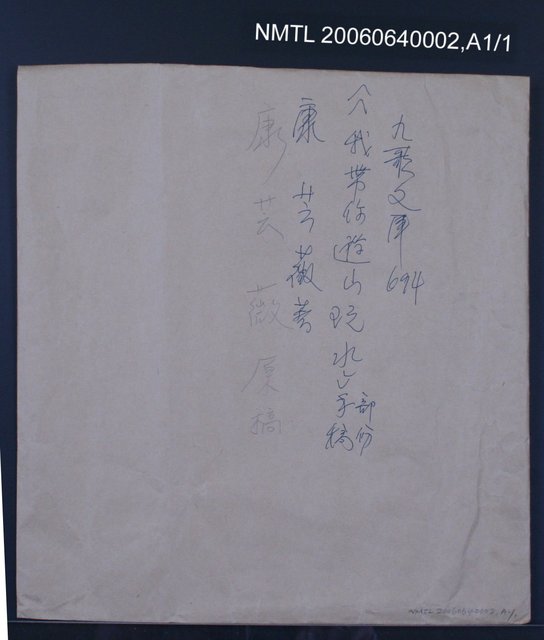 NMTL 20060640002,A1/1
九歌文庫694
〈我帶你遊山玩水〉手稿部份
康芸薇著
康芸薇原稿
NMTL 20060640002, A1/1